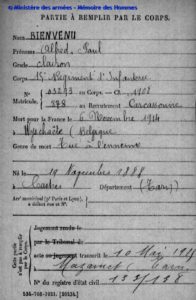 © Ministère des armées - Mémoire des Hommes
PARTIE À REMPLIR PAR LE CORPS.
Nom BIENVENU
Prénoms Alfred Paul
Grade clairon
Corps 15e Régiment d'Infanterie
N° au Corps. — Cl. 1908
Matricule. 878 au Recrutement Carcassonne
Mort pour la France le 6 Novembre 1914
à (Belgique)
Genre de mort Tué à l'ennemi
Né le 19 Novembre 1888
à Département (Tarn)
Arr' municipal (p' Paris et Lyon),
à défaut rue et N°.
Jugement rendu le
par le Tribunal de
acte ou jugement transcrit le 10 Mai
à Mazamet Tarn
N° du registre d'état civil 133/138